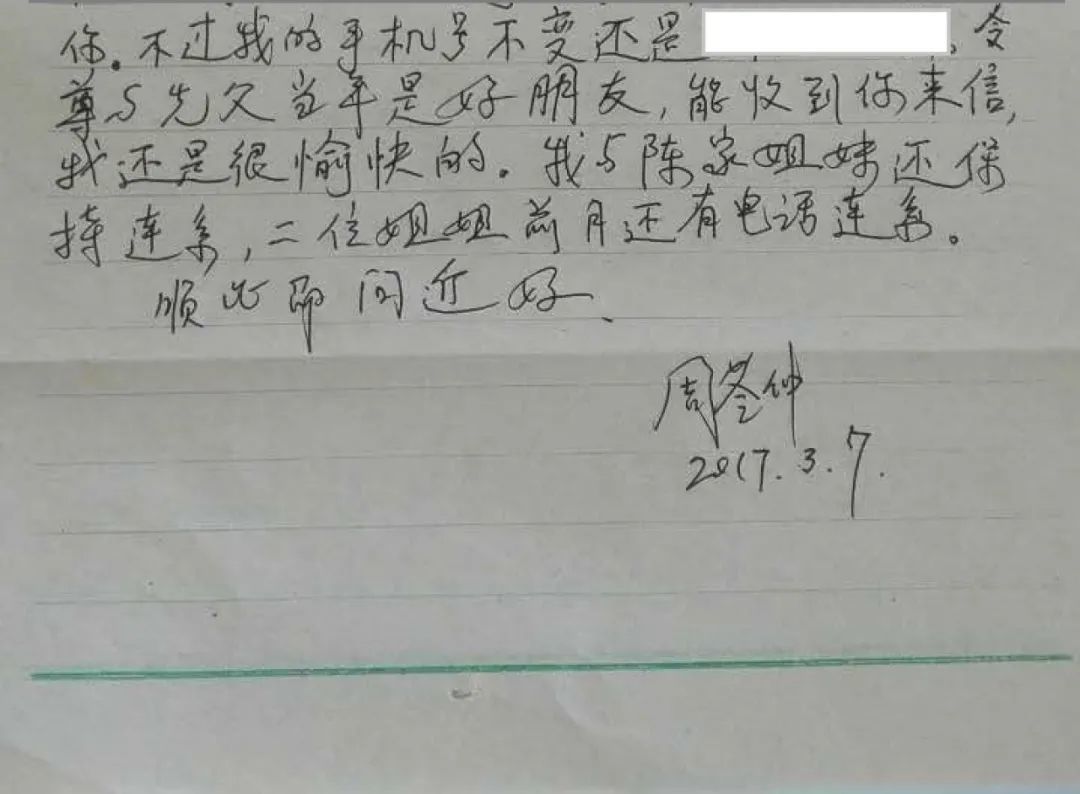 你。不过我的手机号不变还是 ，令
尊与先父当年是好朋友，能收到你来信，
我还是很愉快的。我与陈家姐妹还保
持连系，二位姐姐前月还有电话连系。
顺此即问近好、
周 钟
2017.3.7.